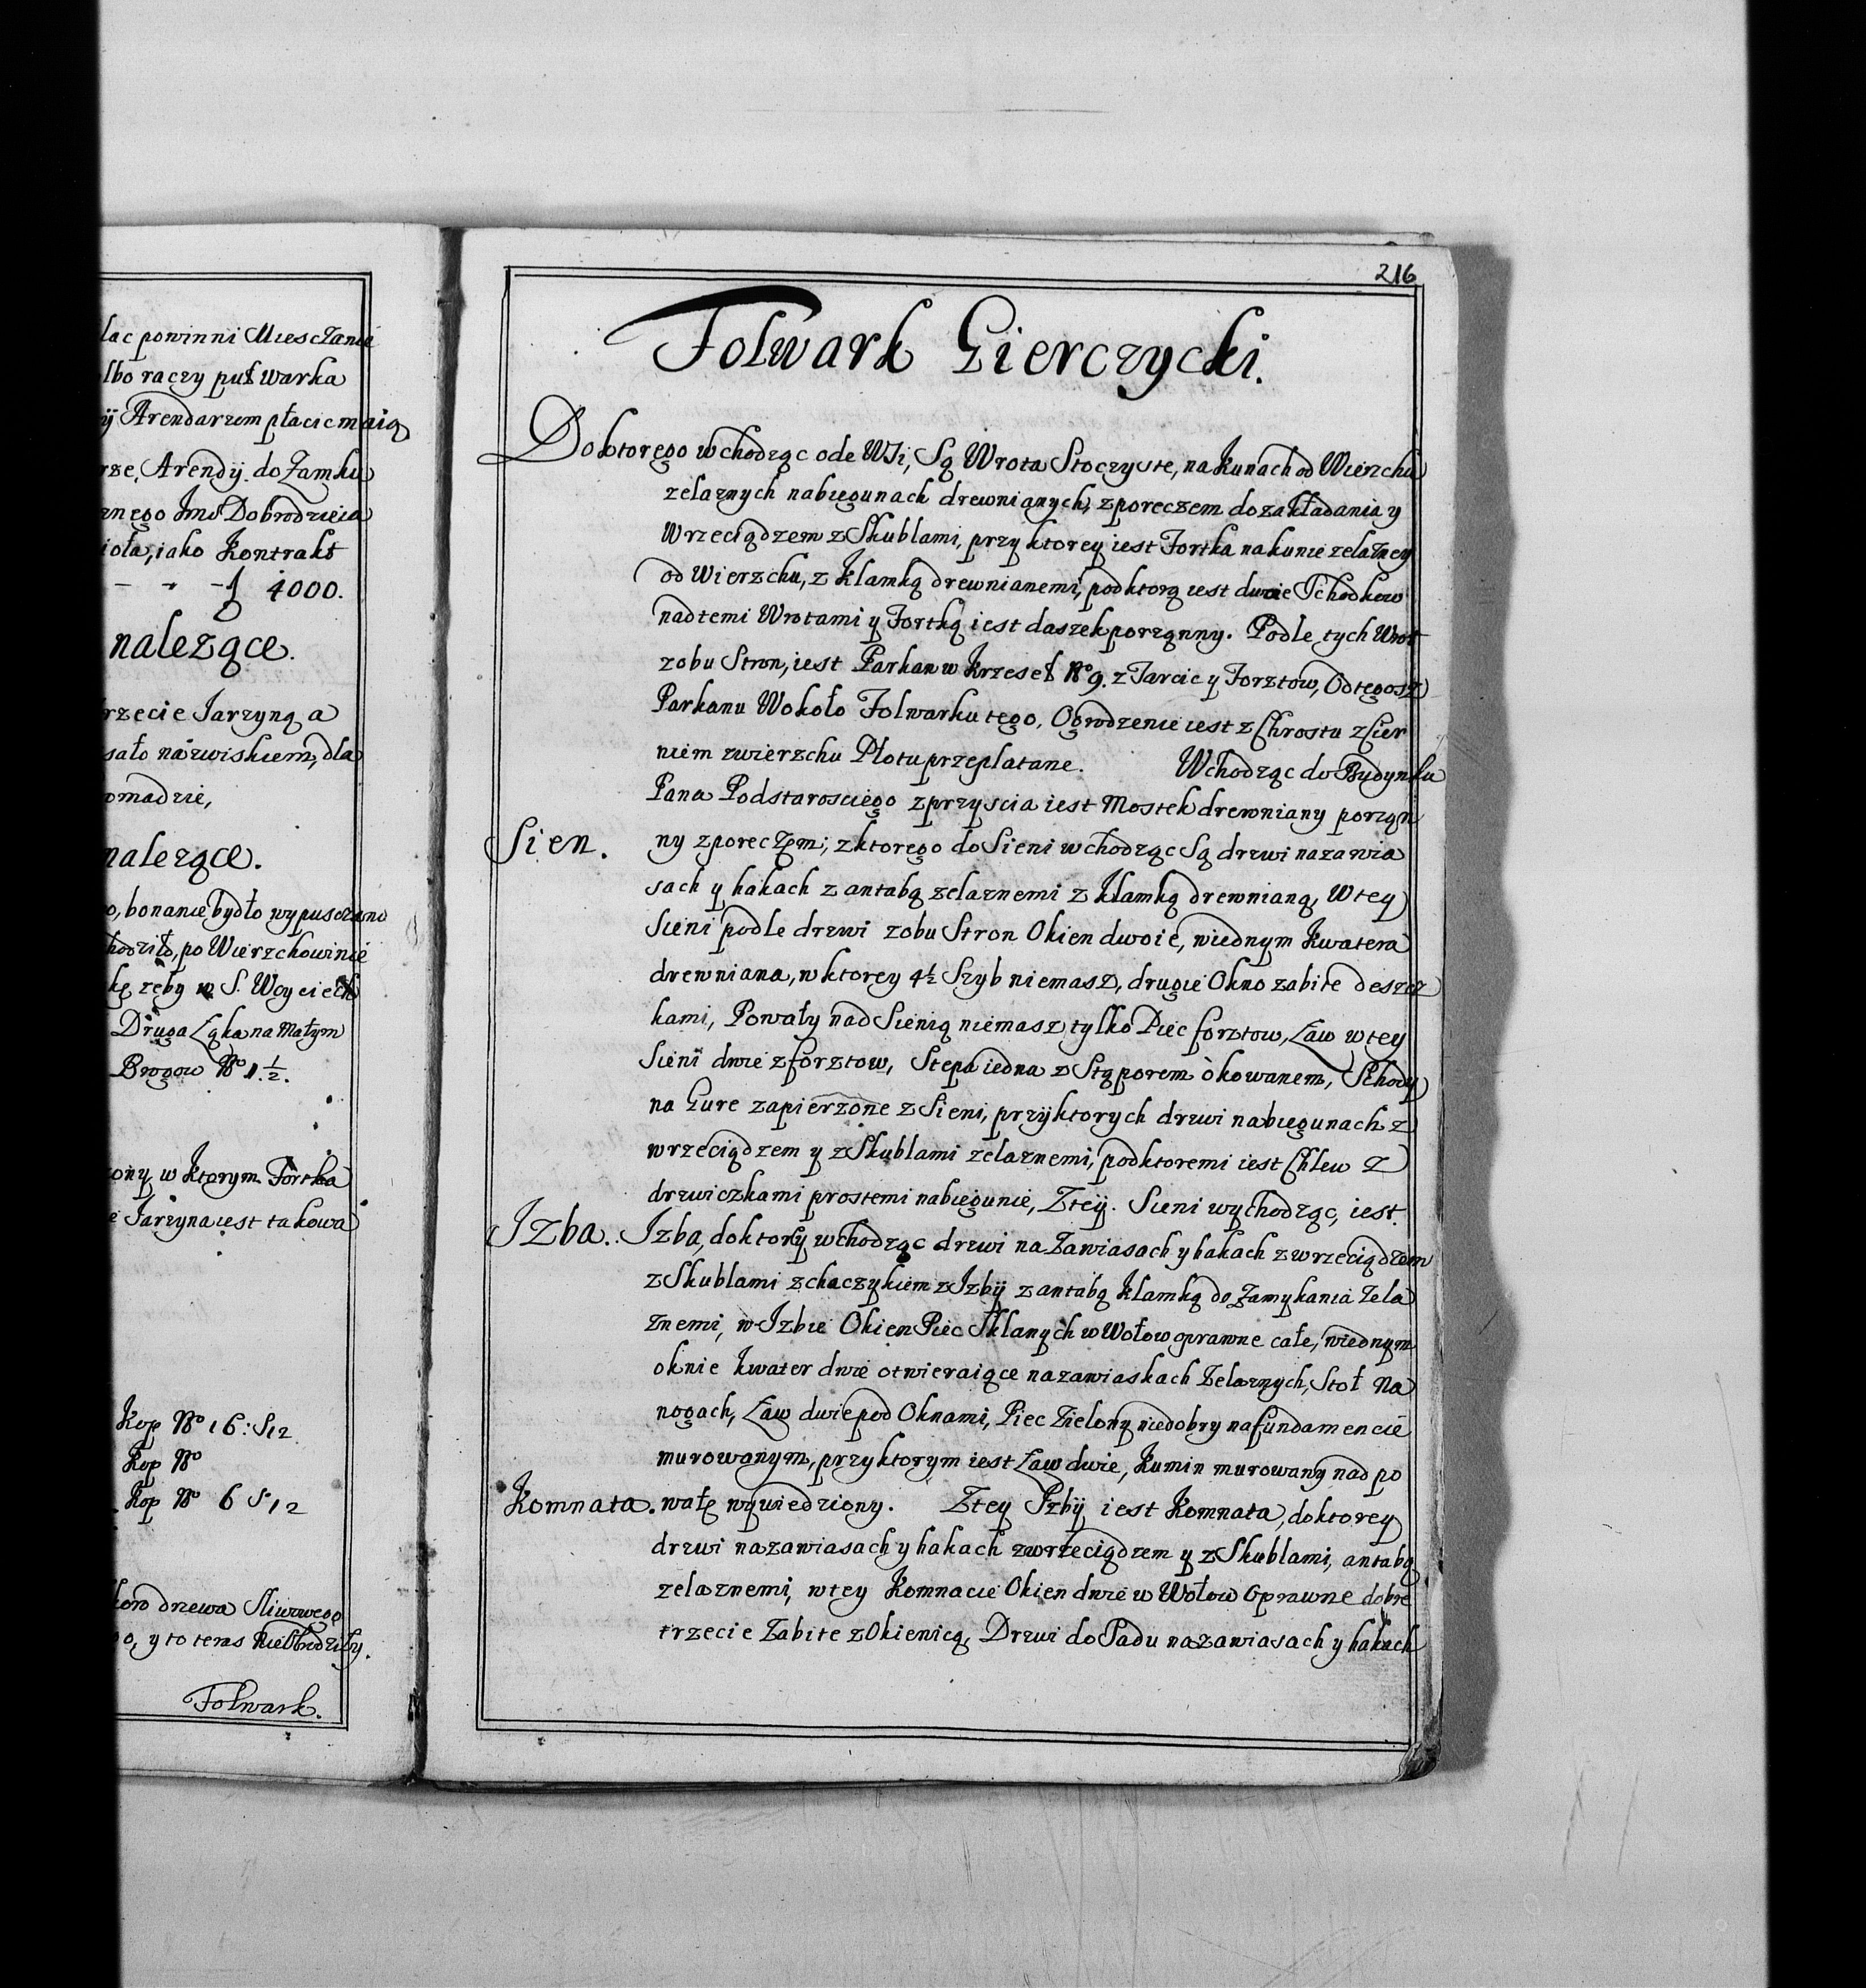 lac powinni Miesczanie
lbo raczy puł warka
ÿ Arendarzom płacic maią
rze, Arendÿ do Zamku
znego Jmś Dobrodzieia
ioła, iako Kontrakt
4000.
nalezące.
rzecie Jarzyną a
sało nazwiskiem, dla
omadzie,
nalezące.
o, bonanie bydło wypusczano
hodziło, po Wierzchowinie
kę zeby w S. Woyciech
Druga Łąka na Małym
Brogow No 1. 1/2.
ony w ktorym Fortka
e Jarzyna iest takowa
Kop No 16: S 12
Kop No
Kop No 6 S 12
kow drzewa Sliwowego
o, y to teras nie Obrodziły.
Folwark.
216
Folwark Gierczycki.
Doktorego wchodząc ode WSi, Są Wrota Stoczyste, na kunach od Wierzchu
zelaznych nabiegunach drewnianych, zporeczem do zakładania y
Wrzeciądzem z Skublami, przy ktorey iest Fortka nakunie zelazney
od Wierzchu, z Klamką drewnianemi, pod ktorą iest dwoie Schodkow
nadtemi Wrotami y Fortką iest daszek porządnny. Podle tych Wrot
zobu Stron, iest Parkan w Krzeseł No 9. z Tarcic y Forsztow, Odtegosz
Parkanu Wokoło Folwarku tego, Ogrodzenie iest z Chrostu z Cier
niem zwierzchu Płotu przeplatane. Wchodząc do Budynku
Pana Podstarosciego zprzyscia iest Mostek drewniany porząn
Sien. ny zporeczem; zktorego do Sieni wchodząc Są drzwi nazawia
sach y hakach z antabą zelaznemi z Klamką drewnianą, Wtey
Sieni podle drzwi zobu Stron Okien dwoie, wiednym Kwatera
drewniana, w ktorey 4 1/2 Szyb niemasz, drugie Okno zabite deszcz
kami, Powały nad Sienią niemasz tylko Piec forsztow, Ław wtey
Sieni dwie z forsztow, Stepa iedna z Stąporem okowanem, Schody
na Gure zapierzone z Sieni, przyktorych drzwi nabiegunach z
wrzeciądzem y z Skublami zelaznemi, podktoremi iest Chlew z
drzwiczkami prostemi nabiegunie, Zteÿ Sieni wychodząc, iest
Izba. Izba, doktorÿ wchodząc drzwi na Zawiasach y hakach z wrzeciądzem
z Skublami zchaczykiem z Izbÿ z antabą Klamką do Zamykania Zela
znemi, w Izbie Okien Piec Sklanych w Wołow oprawne całe, wiednym
oknie kwater dwie otwieraiące nazawiaskach Zelaznych, Stoł Na
nogach, Ław dwie pod Oknami, Piec Zielony niedobry nafundamencie
murowanym, przyktorym iest Ław dwie, Kumin murowany nad po
Komnata. wałę wywiedziony. Ztey Izbÿ iest Komnata, doktorey
drzwi nazawiasach y hakach z wrzeciądzem y z Skublami, antabą
zelaznemi, wtey Komnacie Okien dwie w Wołow Oprawne dobre
trzecie Zabite z Okienicą, Drzwi do Sadu nazawiasach y hakach